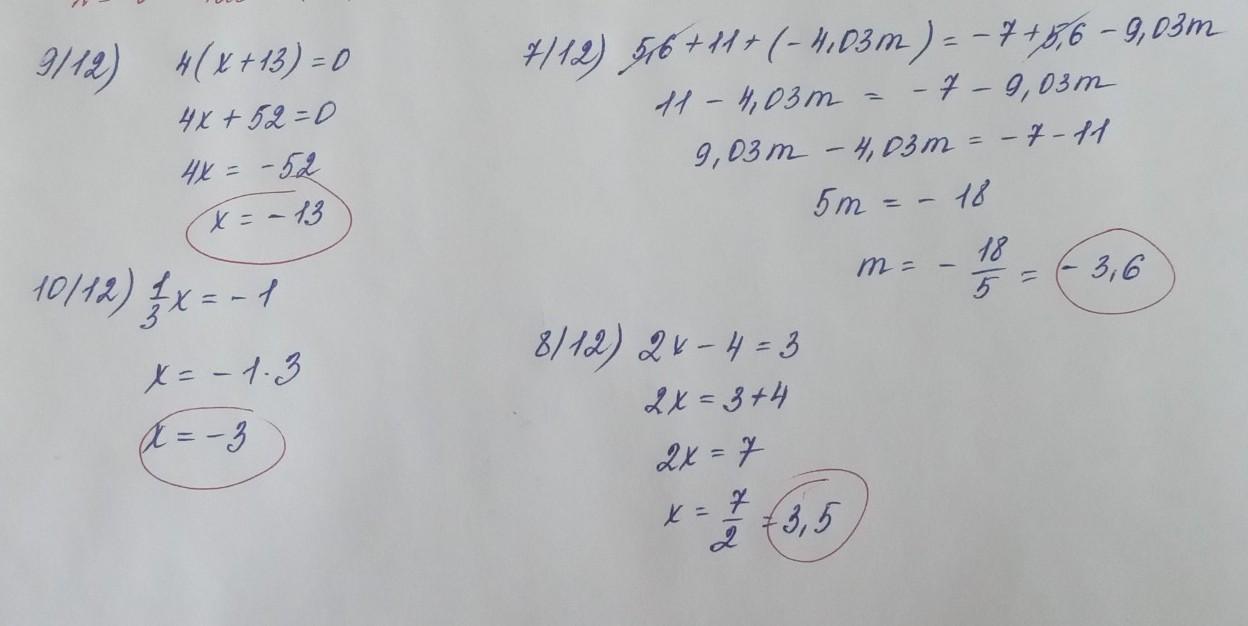 9/12) 4(x+13)=0
4x+52=0
4x = -52
x = -13
10/12) 1/3 x = -1
x = -1·3
x = -3
7/12) 5,6+11+(-4,03m) = -7+5,6-9,03m
11 - 4,03m = -7 - 9,03m
9,03m - 4,03m = -7-11
5m = - 18
m = - 18/5 = - 3,6
8/12) 2x - 4 = 3
2x = 3+4
2x = 7
x = 7/2 = 3,5